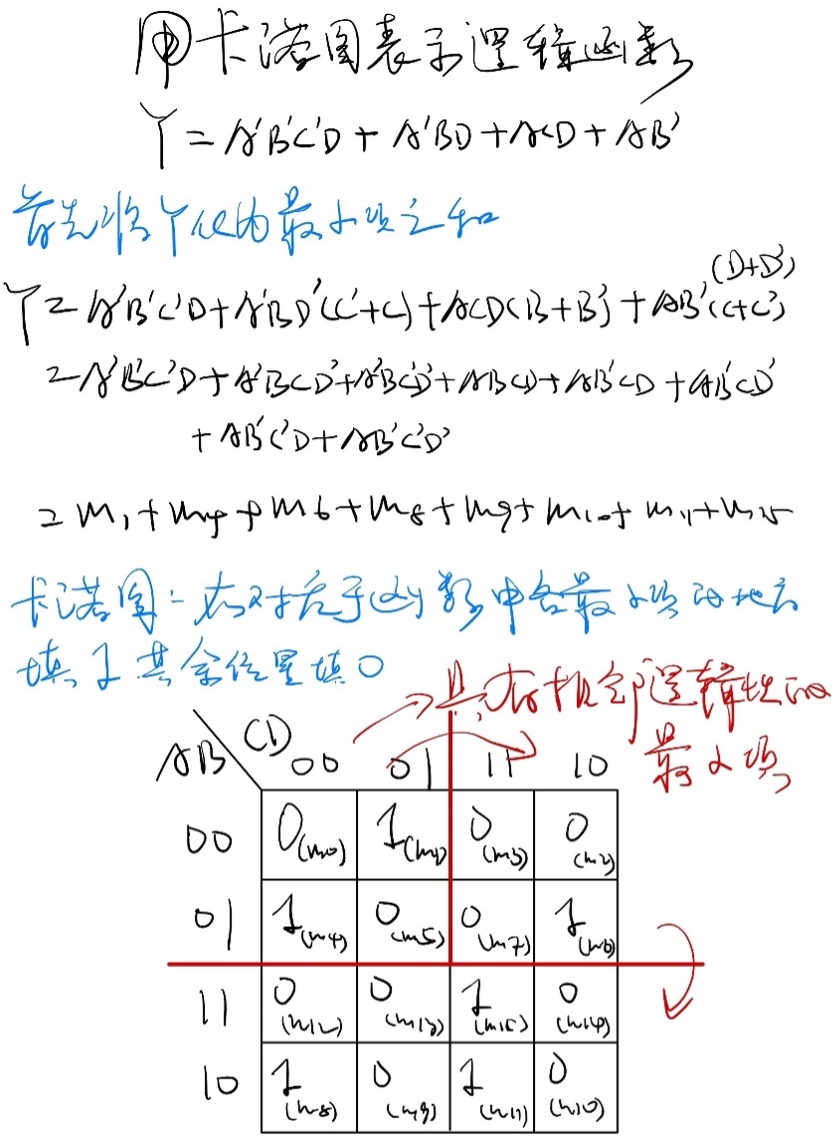 用卡诺图表示逻辑函数
Y = A'B'C'D + A'BD + ACD + AB'
首先将Y化为最小项之和
(D+D')
Y = A'B'C'D + A'BD'(C'+C) + ACD(B+B') + AB'(C+C')
= A'B'C'D + A'BCD' + A'BC'D' + ABCD + AB'CD + AB'CD'
+ AB'C'D + AB'C'D'
= m1 + m4 + m6 + m8 + m9 + m10 + m11 + m15
卡诺图:在对应于函数中各最小项的地方
填1其余位置填0
具有相邻逻辑性的
最小项
AB CD 00 01 11 10
00 0(m0) 1(m1) 0(m3) 0(m2)
01 1(m4) 0(m5) 0(m7) 1(m6)
11 0(m12) 0(m13) 1(m15) 0(m14)
10 1(m8) 0(m9) 1(m11) 0(m10)